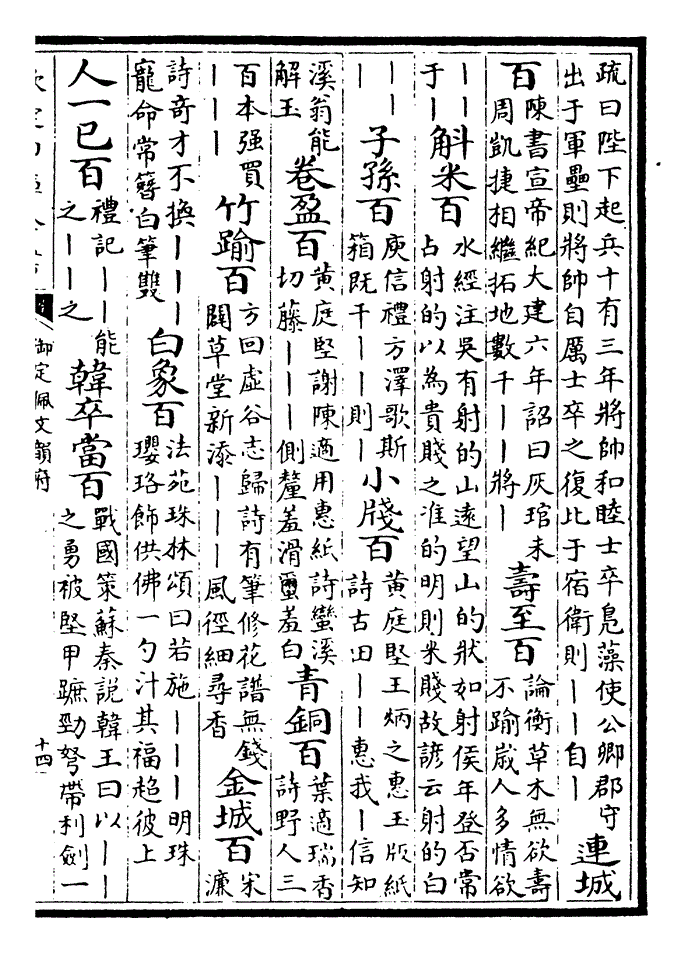 疏曰陛下起兵十有三年將帥和睦士卒鳬藻使公卿郡守
出于軍壘則將帥自厲士卒之復比于宿衛則丨丨自丨
連城
百
陳書宣帝紀大建六年詔曰灰琯未
周凱捷相繼拓地數千丨丨將丨
壽至百
論衡草木無欲壽
不踰歲人多情欲
丨丨
于丨
斛米百
水經注吳有射的山遠望山的狀如射侯年登否常
占射的以為貴賤之准的明則米賤故諺云射的白
丨丨
丨丨
子孫百
庾信禮方澤歌斯
箱既千丨丨則丨
小牋百
黄庭堅王炳之惠玉版紙
詩古田丨丨惠我丨信知
溪翁能
解玉
卷盈百
黄庭堅謝陳適用惠紙詩蠻溪
切藤丨丨丨側釐羞滑璽羞白
青銅百
葉適瑞香
詩野人三
百本强買
丨丨丨
竹踰百
方回虛谷志歸詩有筆修花譜無錢
闢草堂新添丨丨丨風徑細尋香
金城百
宋
濂
詩奇才不換丨丨丨
寵命常簪白筆雙
白象百
法苑珠林頌曰若施丨丨丨明珠
瓔珞飾供佛一勺汁其福超彼上
人一已百
禮記丨丨能
之丨丨之
韓卒當百
戰國策蘇秦說韓王曰以丨丨
之勇被堅甲蹠勁弩帶利劍一
御定佩文韻府
十四